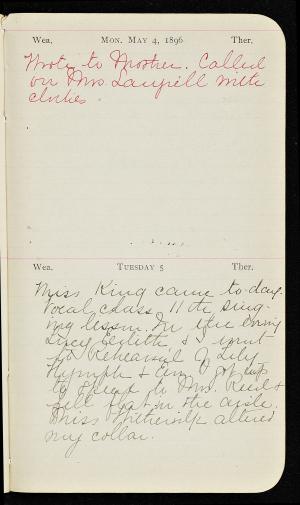 Wea. MON. MAY 4, 1896 Ther.
Wrote to Mother. Called
on Mrs. with
clothes
Wea. TUESDAY 5 Ther.
Miss King came to-day.
Vocal class. 11th sing-
ing lesson. In the evening
Lucy Edith & I went
to Rehearsal of Lily
Nymph & Em. I got up
to speak to Mrs. Reed &
fell flat in the aisle.
Miss altered
my collar.